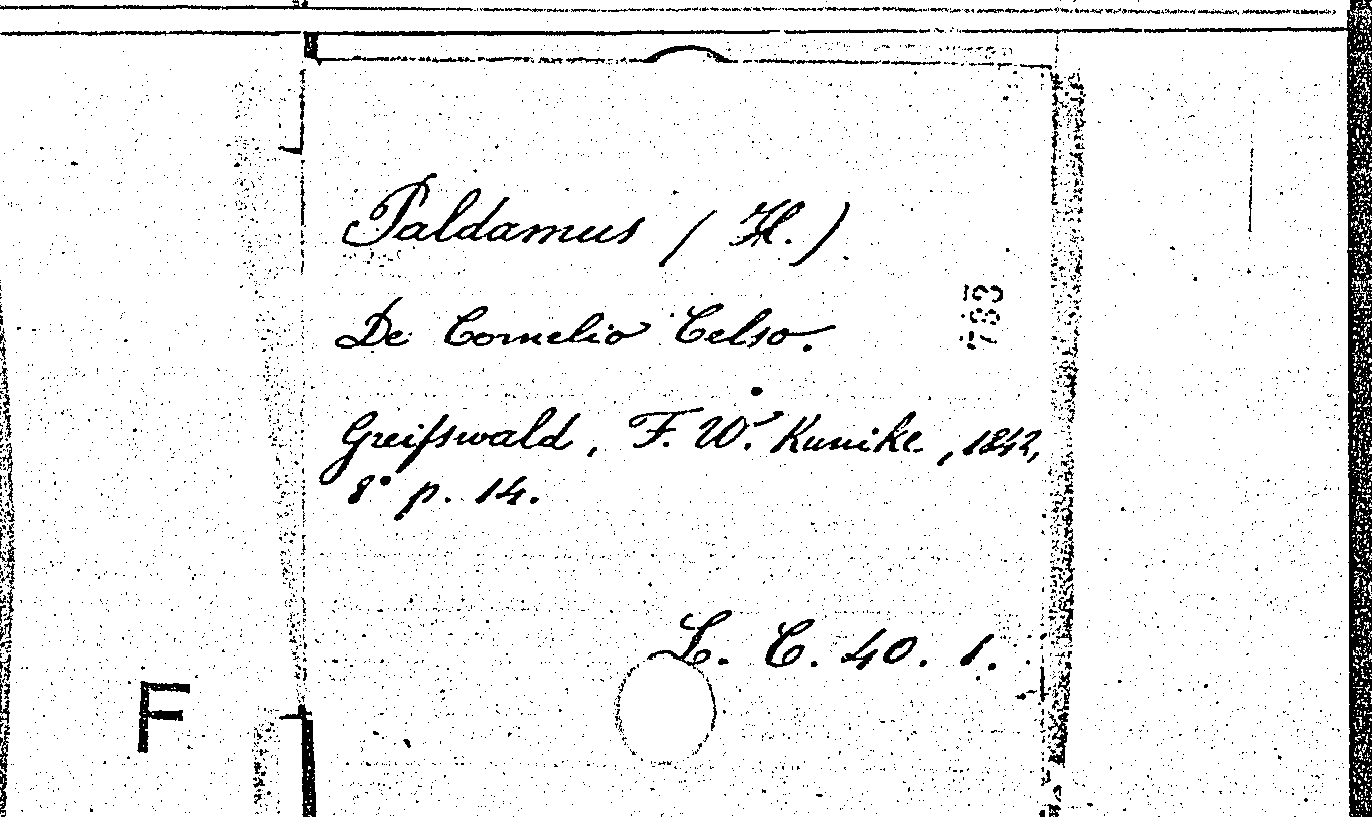 Paldamus (H.)
De Cornelio Celso.
783
Greifswald, F. W. Kunike, 1842,
8° p. 14.
L. C. 40. 1.
F